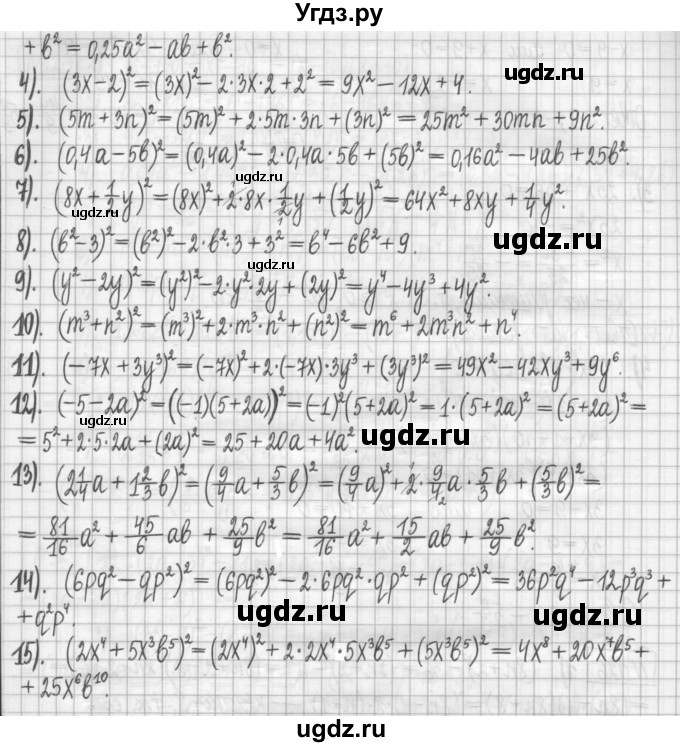 Угдз.ру
+ b² = 0,25a² − ab + b².
4). (3x − 2)² = (3x)² − 2·3x·2 + 2² = 9x² − 12x + 4.
5). (5m + 3n)² = (5m)² + 2·5m·3n + (3n)² = 25m² + 30mn + 9n².
6). (0,4a − 5b)² = (0,4a)² − 2·0,4a·5b + (5b)² = 0,16a² − 4ab + 25b².
ugdz.ru
7). (8x + 1/2 y)² = (8x)² + 2·8x·1/2 y + (1/2 y)² = 64x² + 8xy + 1/4 y².
8). (b² − 3)² = (b²)² − 2·b²·3 + 3² = b⁴ − 6b² + 9.
ugdz.ru
ugdz.ru
9). (y² − 2y)² = (y²)² − 2·y²·2y + (2y)² = y⁴ − 4y³ + 4y².
10). (m³ + n²)² = (m³)² + 2·m³·n² + (n²)² = m⁶ + 2m³n² + n⁴.
ugdz.ru
11). (−7x + 3y³)² = (−7x)² + 2·(−7x)·3y³ + (3y³)² = 49x² − 42xy³ + 9y⁶.
12). (−5 − 2a)² = ((−1)(5 + 2a))² = (−1)²(5 + 2a)² = 1·(5 + 2a)² = (5 + 2a)² =
ugdz.ru
= 5² + 2·5·2a + (2a)² = 25 + 20a + 4a².
ugdz.ru
13). (2 1/4 a + 1 2/3 b)² = (9/4 a + 5/3 b)² = (9/4 a)² + 2·9/4 a·5/3 b + (5/3 b)² =
= 81/16 a² + 45/6 ab + 25/9 b² = 81/16 a² + 15/2 ab + 25/9 b².
14). (6pq² − qp²)² = (6pq²)² − 2·6pq²·qp² + (qp²)² = 36p²q⁴ − 12p³q³ +
+ q²p⁴.
ugdz.ru
ugdz.ru
15). (2x⁴ + 5x³b⁵)² = (2x⁴)² + 2·2x⁴·5x³b⁵ + (5x³b⁵)² = 4x⁸ + 20x⁷b⁵ +
+ 25x⁶b¹⁰.
ugdz.ru
ugdz.ru